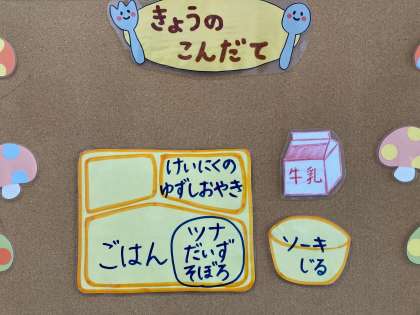 きょうの
こんだて
けいにくの
ゆずしおやき
ごはん
ツナ
だいず
そぼろ
牛乳
ソーキ
じる